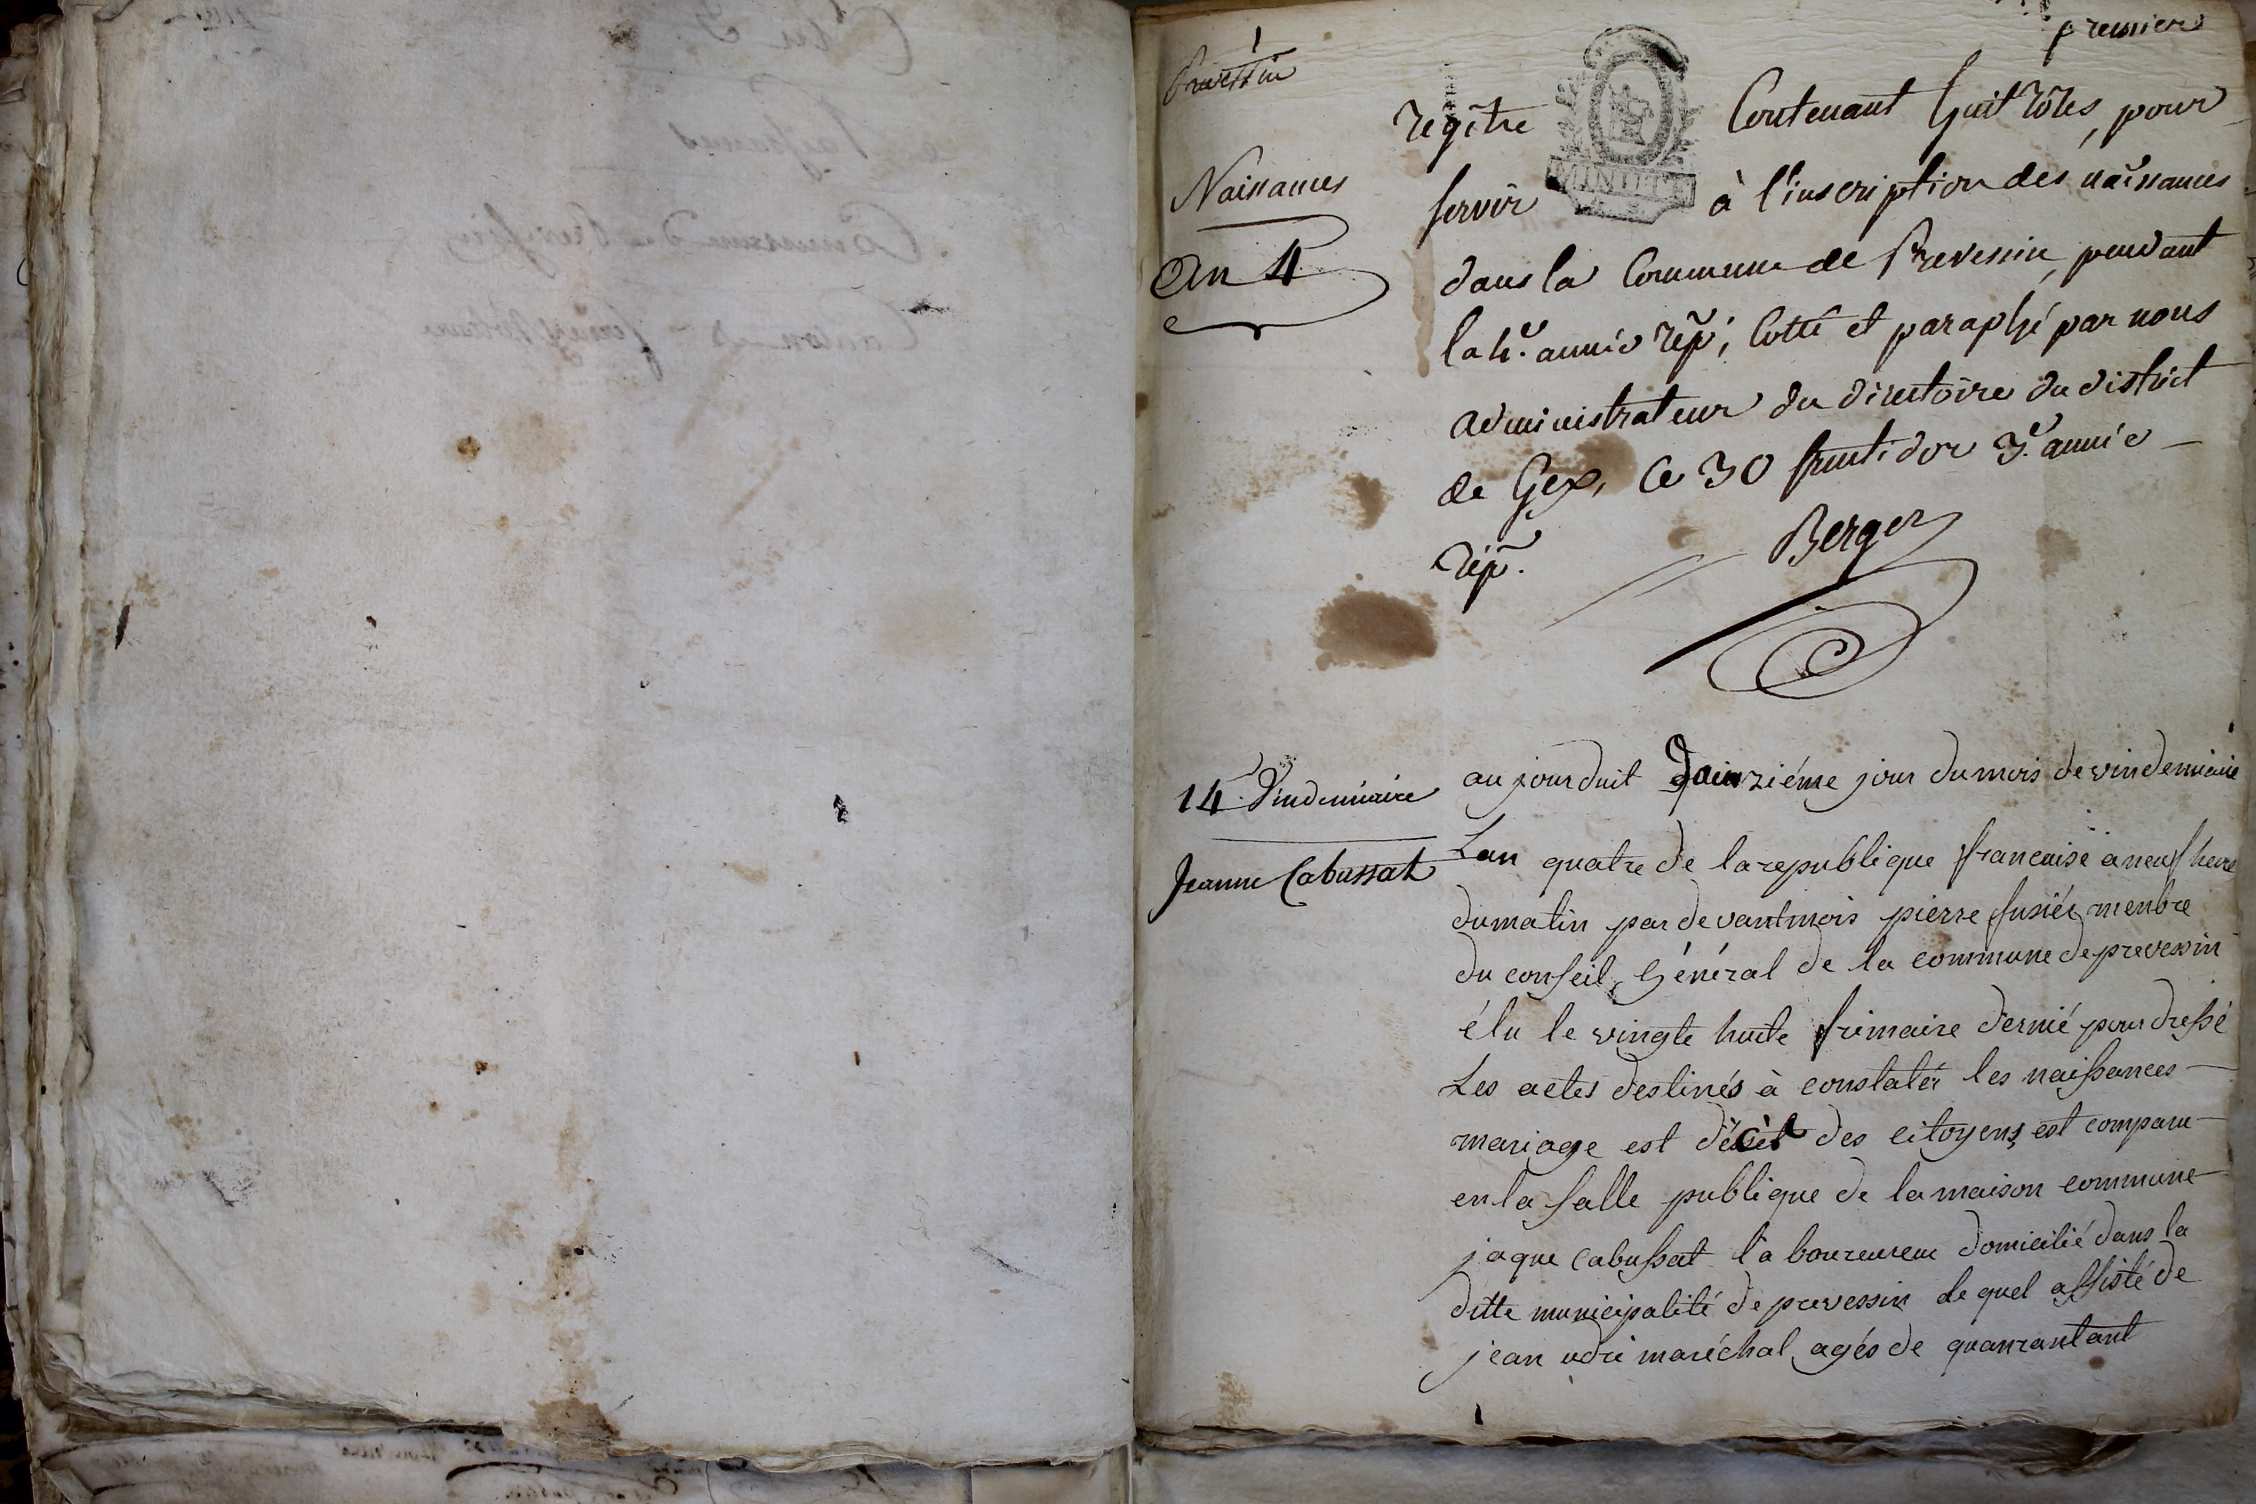 premier
1
Prevessin
Naissances
An 4
registre Contenant huit rôles, pour
servir à l'inscription des naissances
dans la Commune de Prevessin, pendant
la 4e. année rép; Cotté et paraphé par nous
administrateur du directoire du district
de Gex, Ce 30 fructidor 3e. année
rép.
Berger
14 Vindemiaire
Jeanne Cabussat
au jourduit quinziéme jour dumois de vindemiaire
Lan quatre de la republique francaise a neuf heure
dumatin par devant mois pierre fusiér menbre
du conseil Général de la commune de prevessin
élu le vingte huite frimaire dernié pour dressé
Les actes destinés à constatér les naissances
mariage est décèt des citoyens est comparu
en la salle publique de la maison commune
jaque Cabussat laboureureur domicilié dans la
ditte municipalité de prevessin le quel assisté de
jean udri maréchal agés de quanrantant